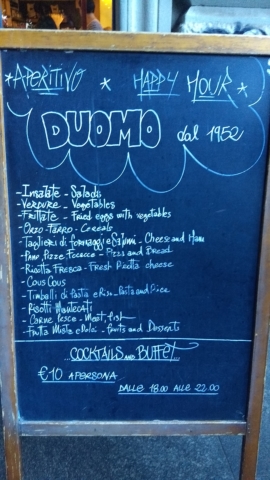 *APERITIVO * HAPPY HOUR *
DUOMO dal 1952
- Insalate - Salads
- Verdure - Vegetables
- Frittate - Fried eggs with vegetables
- Orzo - Farro - Cereals
- Taglieri di formaggi e Salumi - Cheese and Ham
- Pane, Pizze, Focacce - Pizza and Bread
- Ricotta Fresca - Fresh Ricotta cheese
- Cous Cous
- Timballi di Pasta e Riso - Pasta and Rice
- Risotti Mantecati
- Carne Pesce - Meat, fish
- Frutta Mista e Dolci - fruits and Desserts
COCKTAILS AND BUFFET
€10 A PERSONA
DALLE 18.00 ALLE 22.00